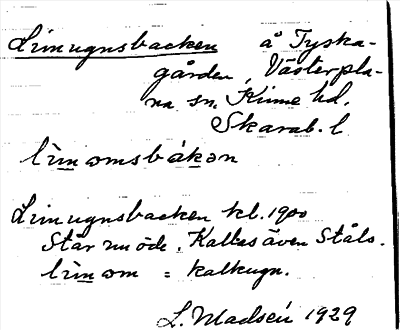 Limugnsbacken å Tyska-
gården, Västerpla-
na sn. Kinne hd.
Skarab. l
līnomsbákən
Limugnsbacken kl. 1900
Står nu öde. Kallas även Ståls.
līnom = kalkugn.
L. Madsén 1929